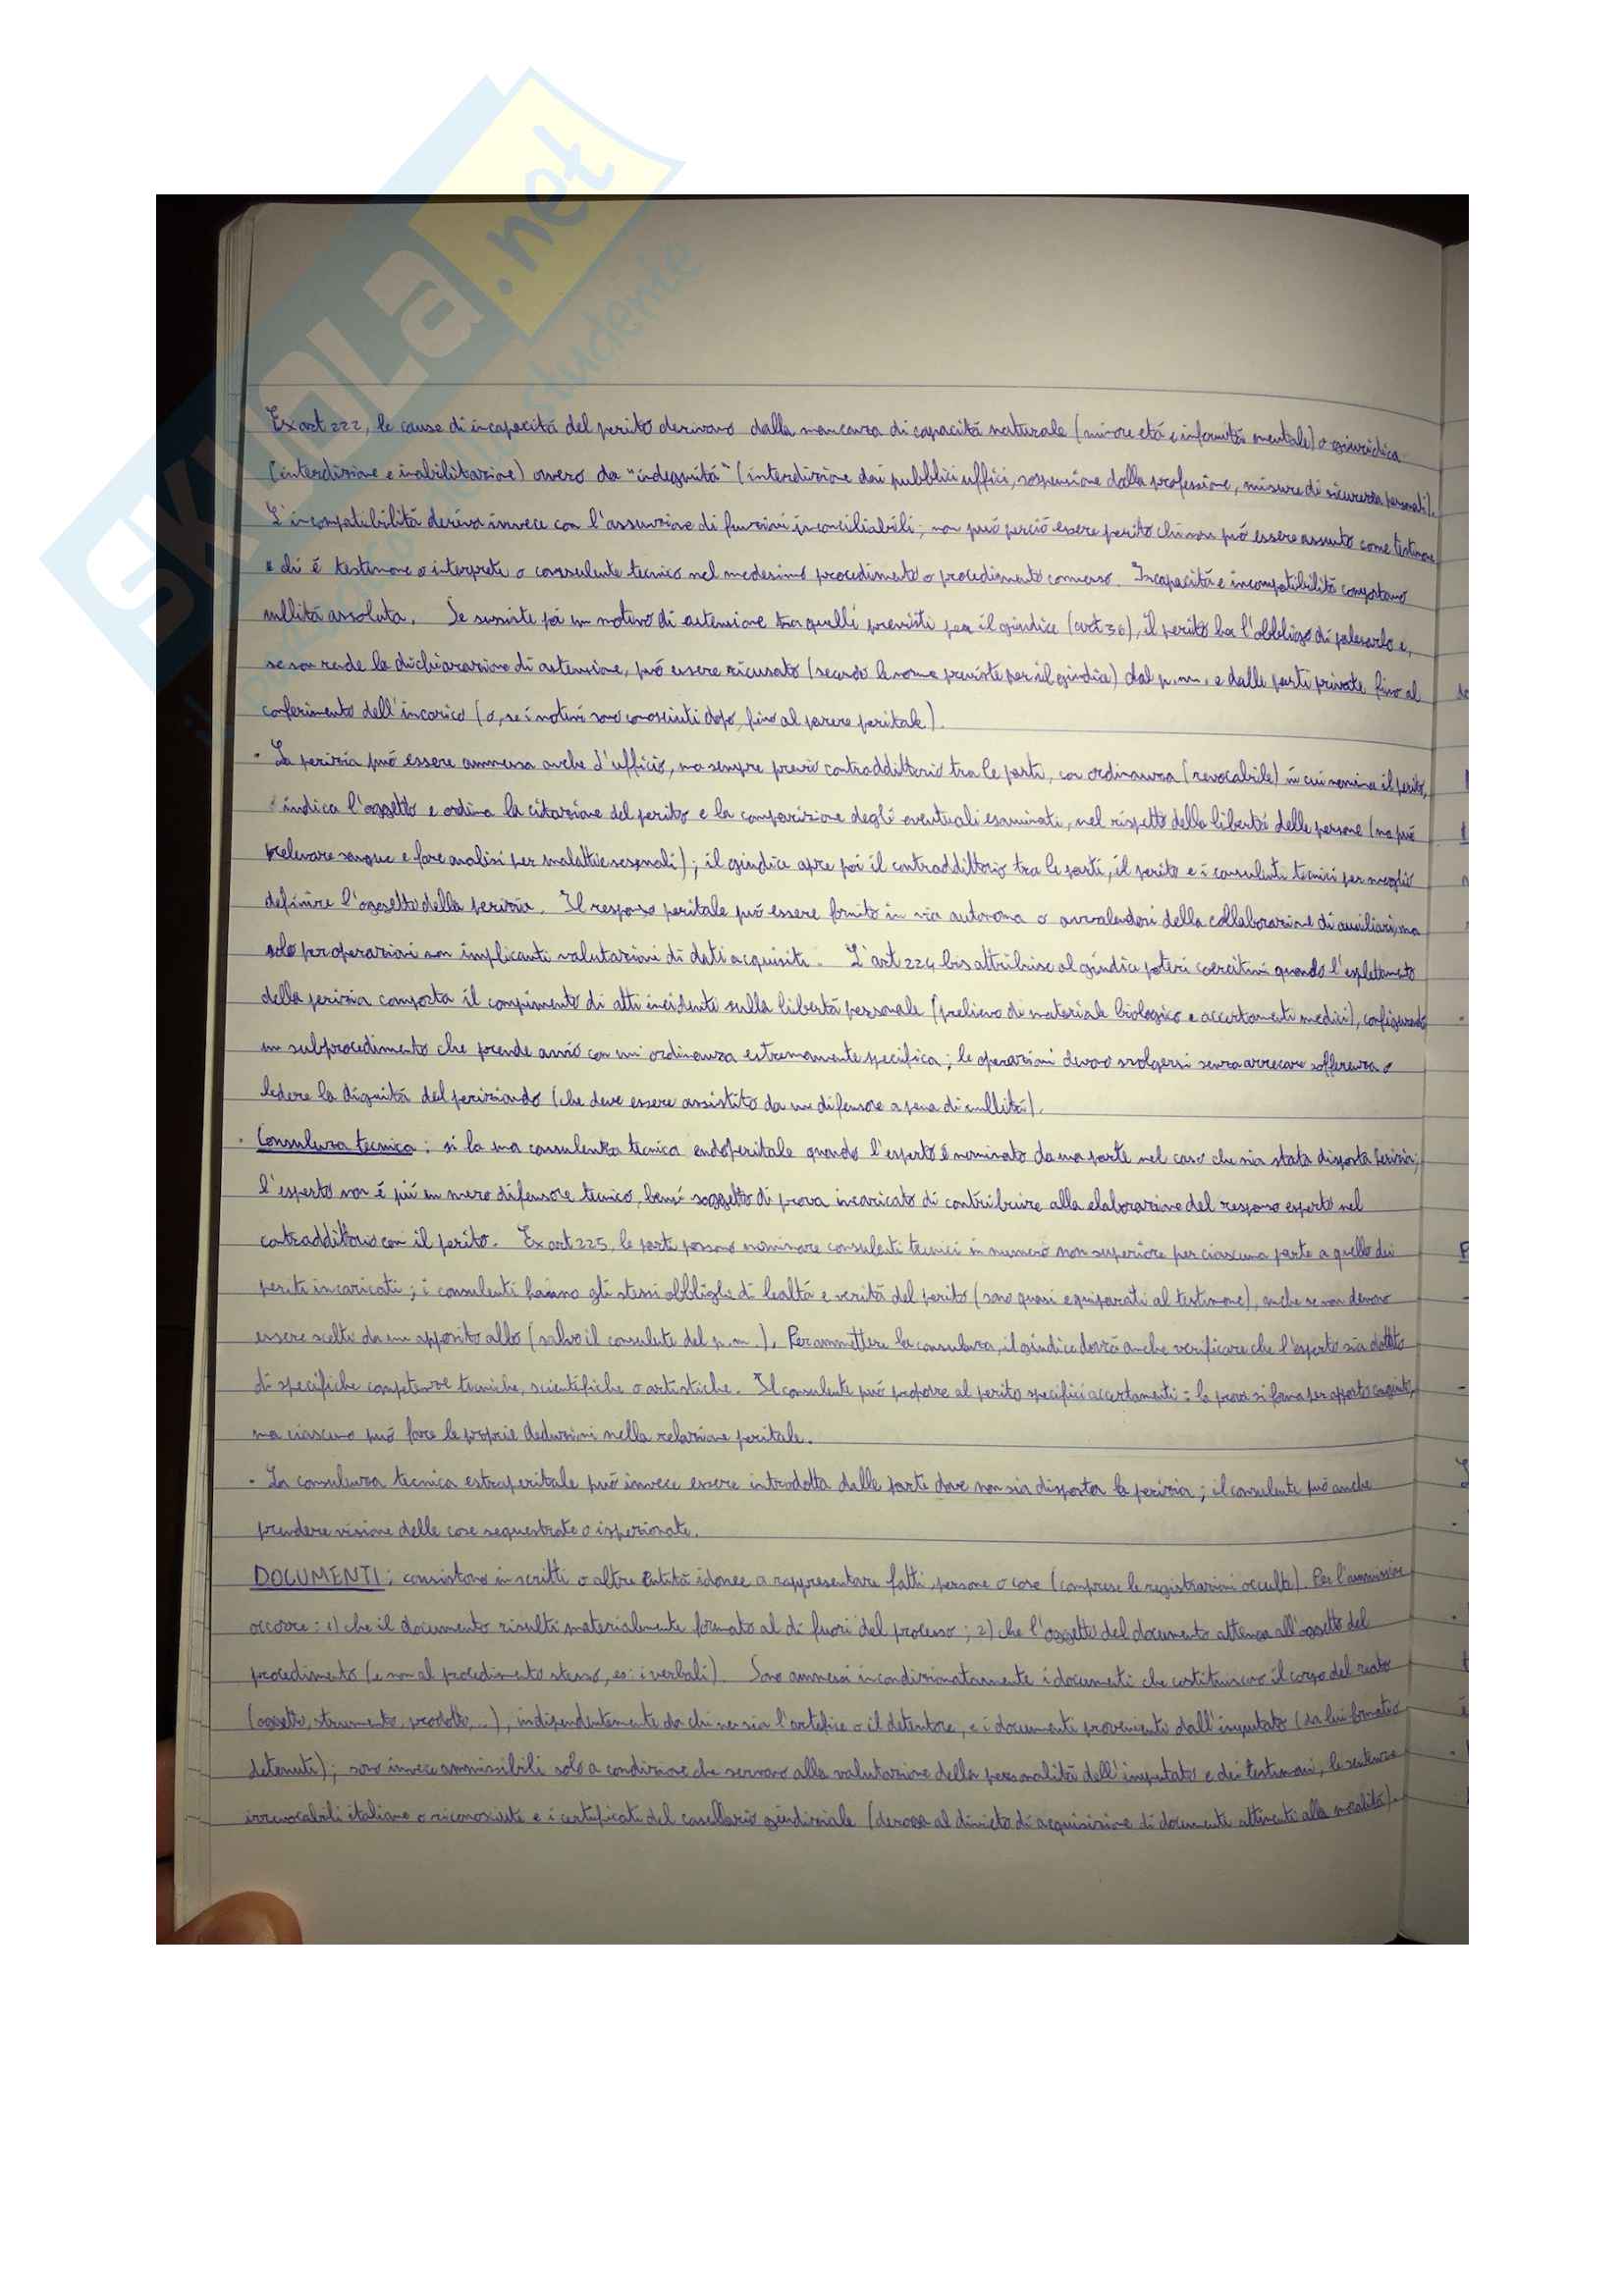 SKUOLa.net
studente
Ex art 222, le cause di incapacitá del perito derivano dalla mancanza di capacitá naturale (minore etá e infermitá mentale) o giuridica
(interdizione e inabilitazione) ovvero da "indegnitá" (interdizione dai pubblici uffici, sospensione dalla professione, misure di sicurezza personali).
L'incompatibilitá deriva invece con l'assunzione di funzioni inconciliabili; non puó perció essere perito chi non puó essere assunto come testimone
e chi é testimone o interprete o consulente tecnico nel medesimo procedimento o procedimento connesso. Incapacitá e incompatibilitá comportano
nullitá assoluta. Se sussiste poi un motivo di astensione tra quelli previsti per il giudice (art 36), il perito ha l'obbligo di palesarlo e,
se non rende la dichiarazione di astensione, puó essere ricusato (secondo le norme previste per il giudice) dal p.m. e dalle parti private fino al
conferimento dell'incarico (o, se i motivi sono conosciuti dopo, fino al parere peritale).
· La perizia puó essere ammessa anche d'ufficio, ma sempre previo contraddittorio tra le parti, con ordinanza (revocabile) in cui nomina il perito,
indica l'oggetto e ordina la citazione del perito e la comparizione degli eventuali esaminati, nel rispetto della libertá delle persone (no puó
prelevare sangue e fare analisi per malattie sessuali); il giudice apre poi il contraddittorio tra le parti, il perito e i consulenti tecnici per meglio
definire l'oggetto della perizia. Il responso peritale puó essere fornito in via autonoma o avvalendosi della collaborazione di ausiliari, ma
solo per operazioni non implicanti valutazioni di dati acquisiti. L'art 224 bis attribuisce al giudice poteri coercitivi quando l'espletamento
della perizia comporta il compimento di atti incidenti sulla libertá personale (prelievo di materiale biologico e accertamenti medici), configurando
un subprocedimento che prende avvio con un'ordinanza estremamente specifica; le operazioni devono svolgersi senza arrecare sofferenza o
ledere la dignitá del periziando (che deve essere assistito da un difensore a pena di nullitá).
· Consulenza tecnica: si ha una consulenza tecnica endoperitale quando l'esperto é nominato da una parte nel caso che sia stata disposta perizia;
l'esperto non é piú un mero difensore tecnico, bensí soggetto di prova incaricato di contribuire alla elaborazione del responso esperto nel
contraddittorio con il perito. Ex art 225, le parti possono nominare consulenti tecnici in numero non superiore per ciascuna parte a quello dei
periti incaricati; i consulenti hanno gli stessi obblighi di lealtá e veritá del perito (sono quasi equiparati al testimone), anche se non devono
essere scelti da un apposito albo (salvo il consulente del p.m.). Per ammettere la consulenza, il giudice dovrá anche verificare che l'esperto sia dotato
di specifiche competenze tecniche, scientifiche o artistiche. Il consulente puó proporre al perito specifici accertamenti: la prova si forma per apporto congiunto,
ma ciascuno puó fare le proprie deduzioni nella relazione peritale.
· La consulenza tecnica extraperitale puó invece essere introdotta dalle parti dove non sia disposta la perizia; il consulente puó anche
prendere visione delle cose sequestrate o ispezionate.
DOCUMENTI: consistono in scritti o altre entitá idonee a rappresentare fatti, persone o cose (comprese le registrazioni occulte). Per l'ammissione
occorre: 1) che il documento risulti materialmente formato al di fuori del processo; 2) che l'oggetto del documento attenga all'oggetto del
procedimento (e non al procedimento stesso, es: i verbali). Sono ammessi incondizionatamente i documenti che costituiscono il corpo del reato
(oggetto, strumento, prodotto,...), indipendentemente da chi ne sia l'artefice o il detentore, e i documenti provenienti dall'imputato (da lui formati o
detenuti); sono invece ammissibili solo a condizione che servano alla valutazione della personalitá dell'imputato e dei testimoni, le sentenze
irrevocabili italiane o riconosciute e i certificati del casellario giudiziale (deroga al divieto di acquisizione di documenti attinenti alla moralitá).